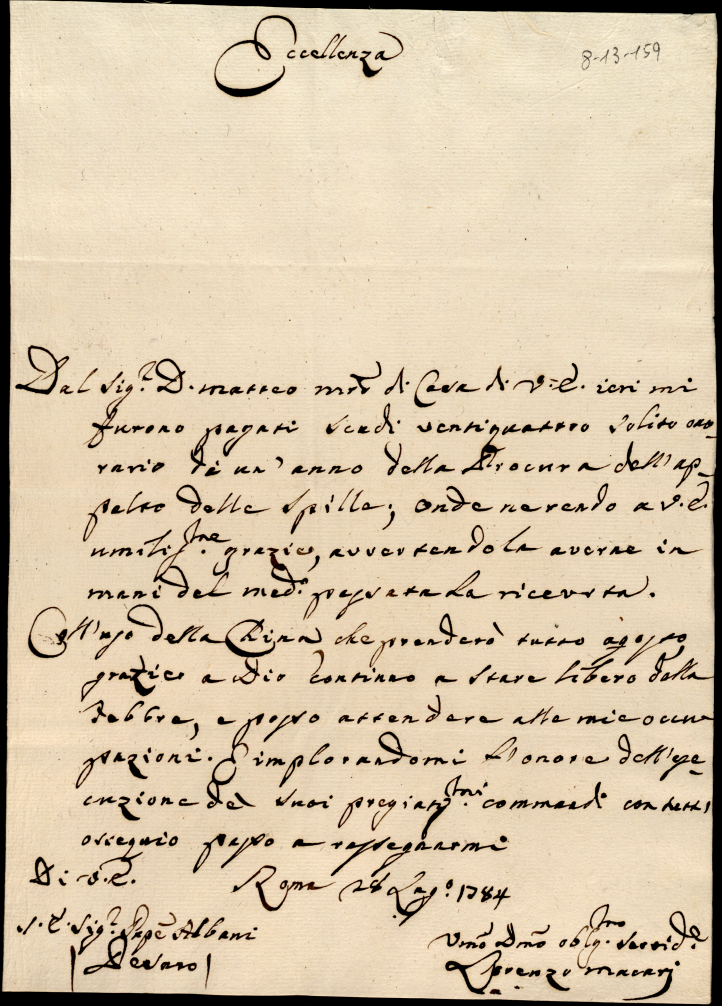 Eccellenza
8-13-159
Dal Sig.r D. Matteo mro di Casa di V. E. ieri mi
furono pagati scudi ventiquattro solito ono-
rario di un' anno della Procura dell' ap-
palto delle Spille; onde ne rendo a V. E.
umiliss.me grazie, avvertendola averne in
mani del med.o passata la ricevuta.
Coll' uso della China che prenderò tutto agosto
grazie a Dio continuo a stare libero dalla
Febbre, e posso attendere alle mie occu
pazioni. E implorandomi l' onore dell' ese
cuzione de suoi pregiatis.mi commandi con tutto
ossequio passo a rassegnarmi
Di V. E. Roma 28 Lug.o 1784
S. E. Sig.r Albani
Pesaro
Umo Dmo oblg.mo Servid.e
Lorenzo Macarj